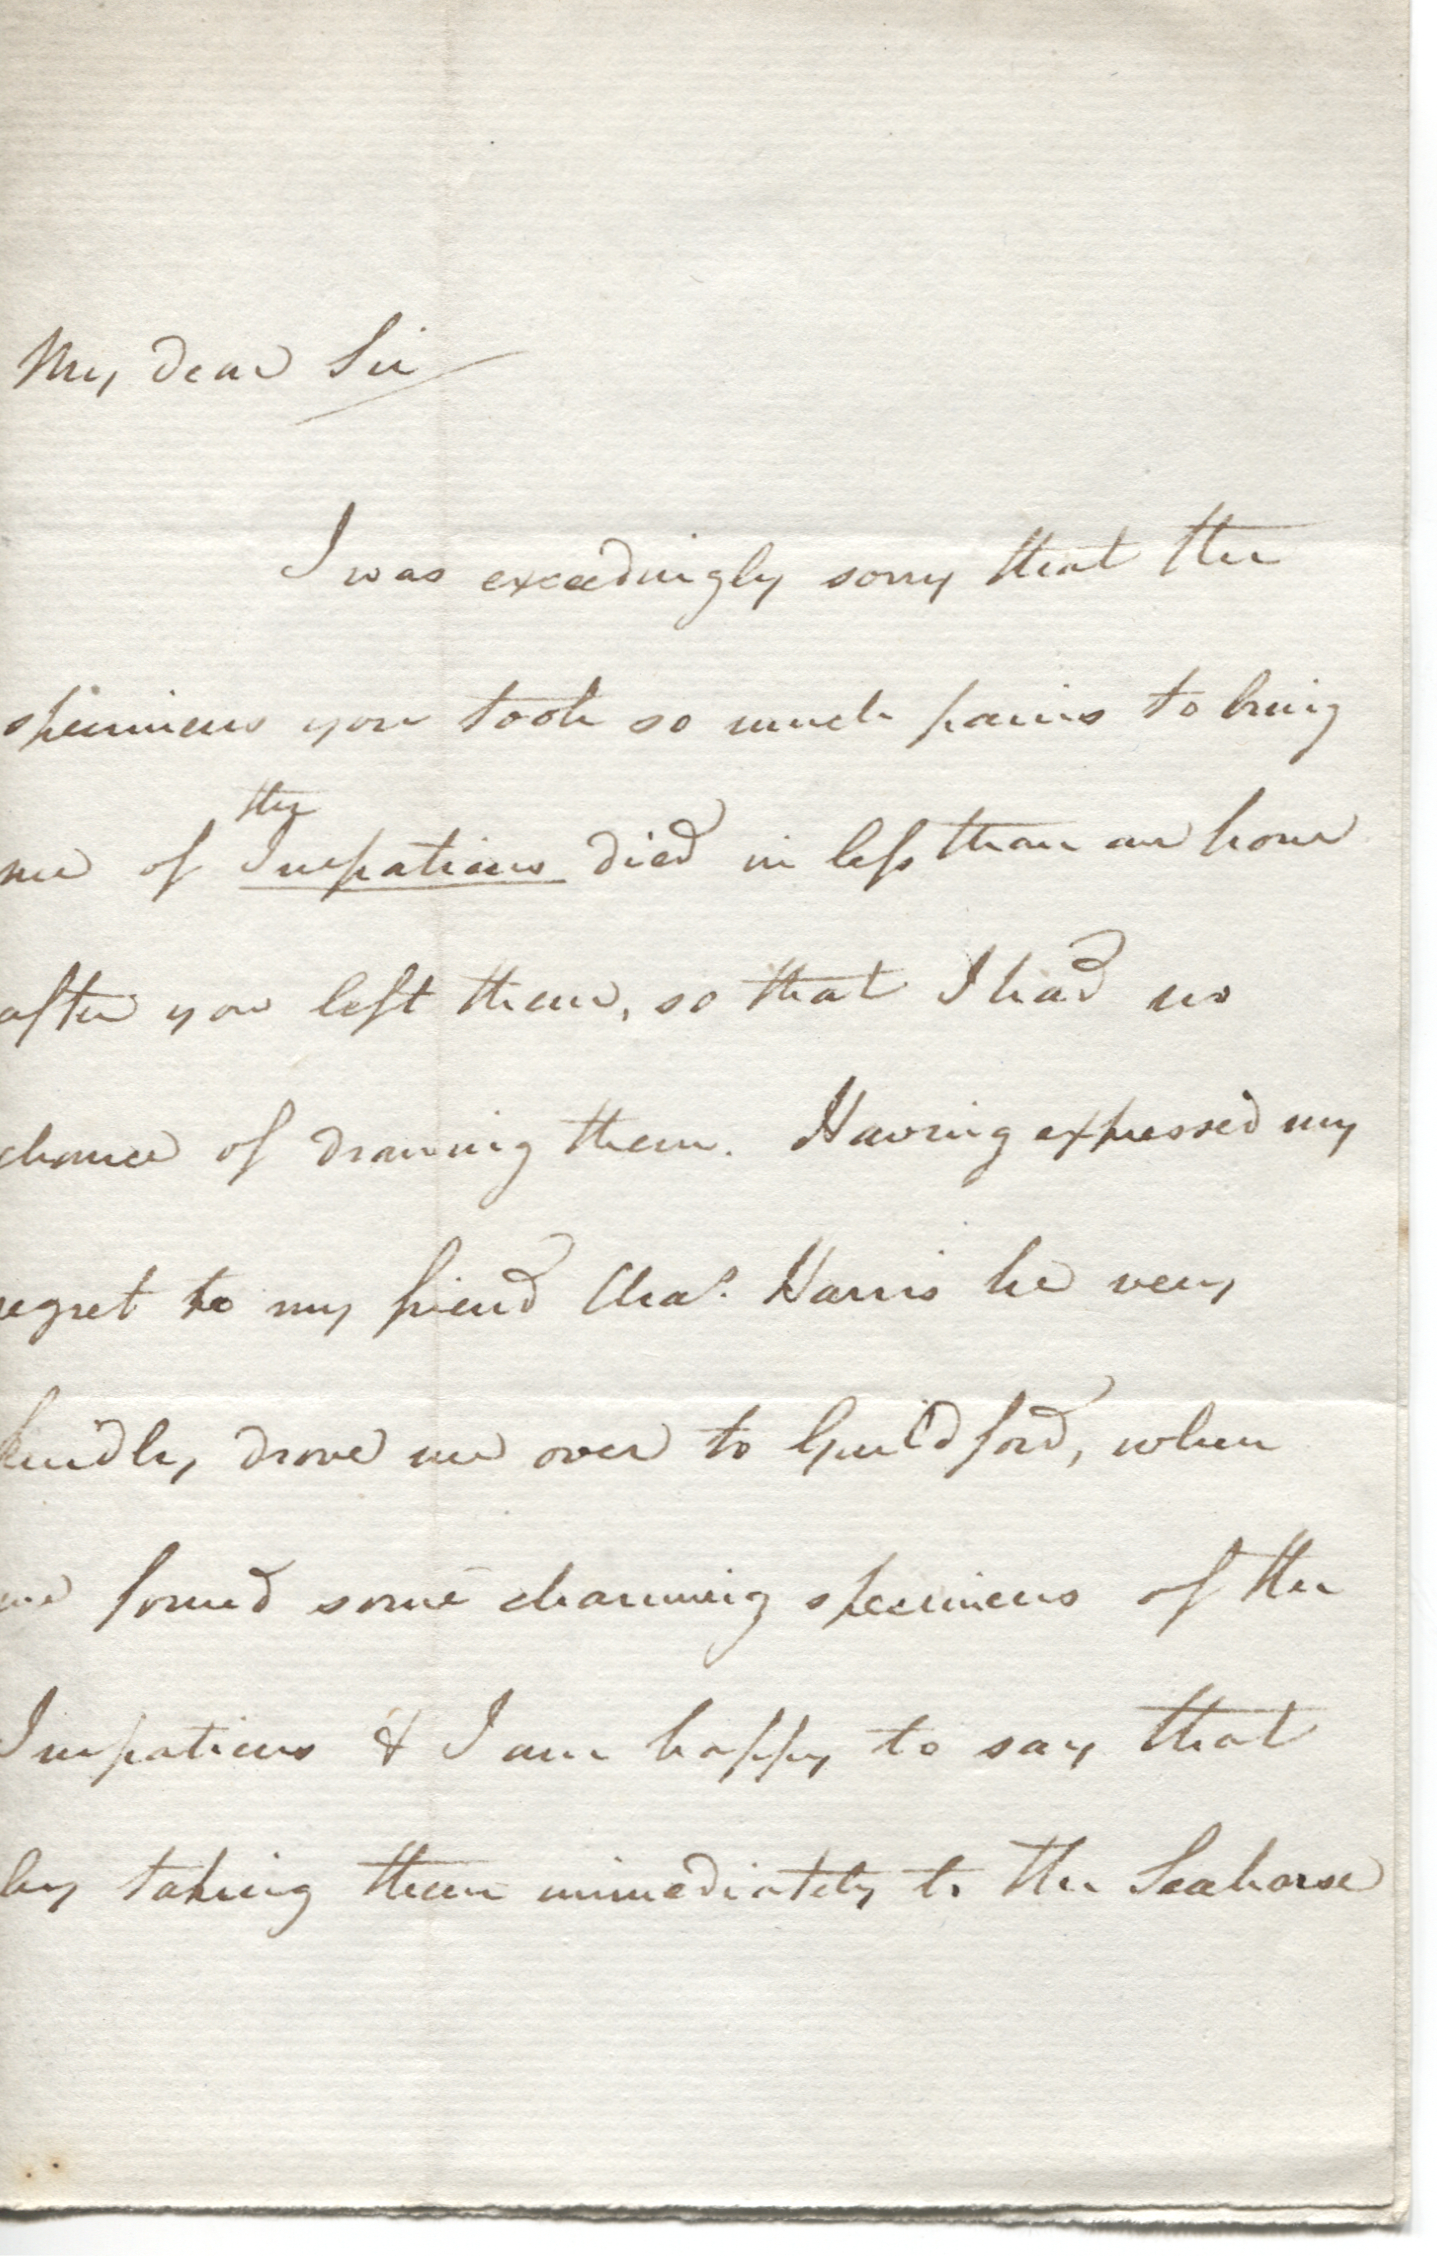 My dear Sir
I was exceedingly sorry that the
specimens you took so much pains to bring
the
me of Impatiens died in less than an hour
after you left them, so that I had no
chance of drawing them. Having expressed my
regret to my friend Chas. Harris he very
kindly drove me over to Guildford, when
we found some charming specimens of the
Impatiens & I am happy to say that
by taking them immediately to the Seahorse